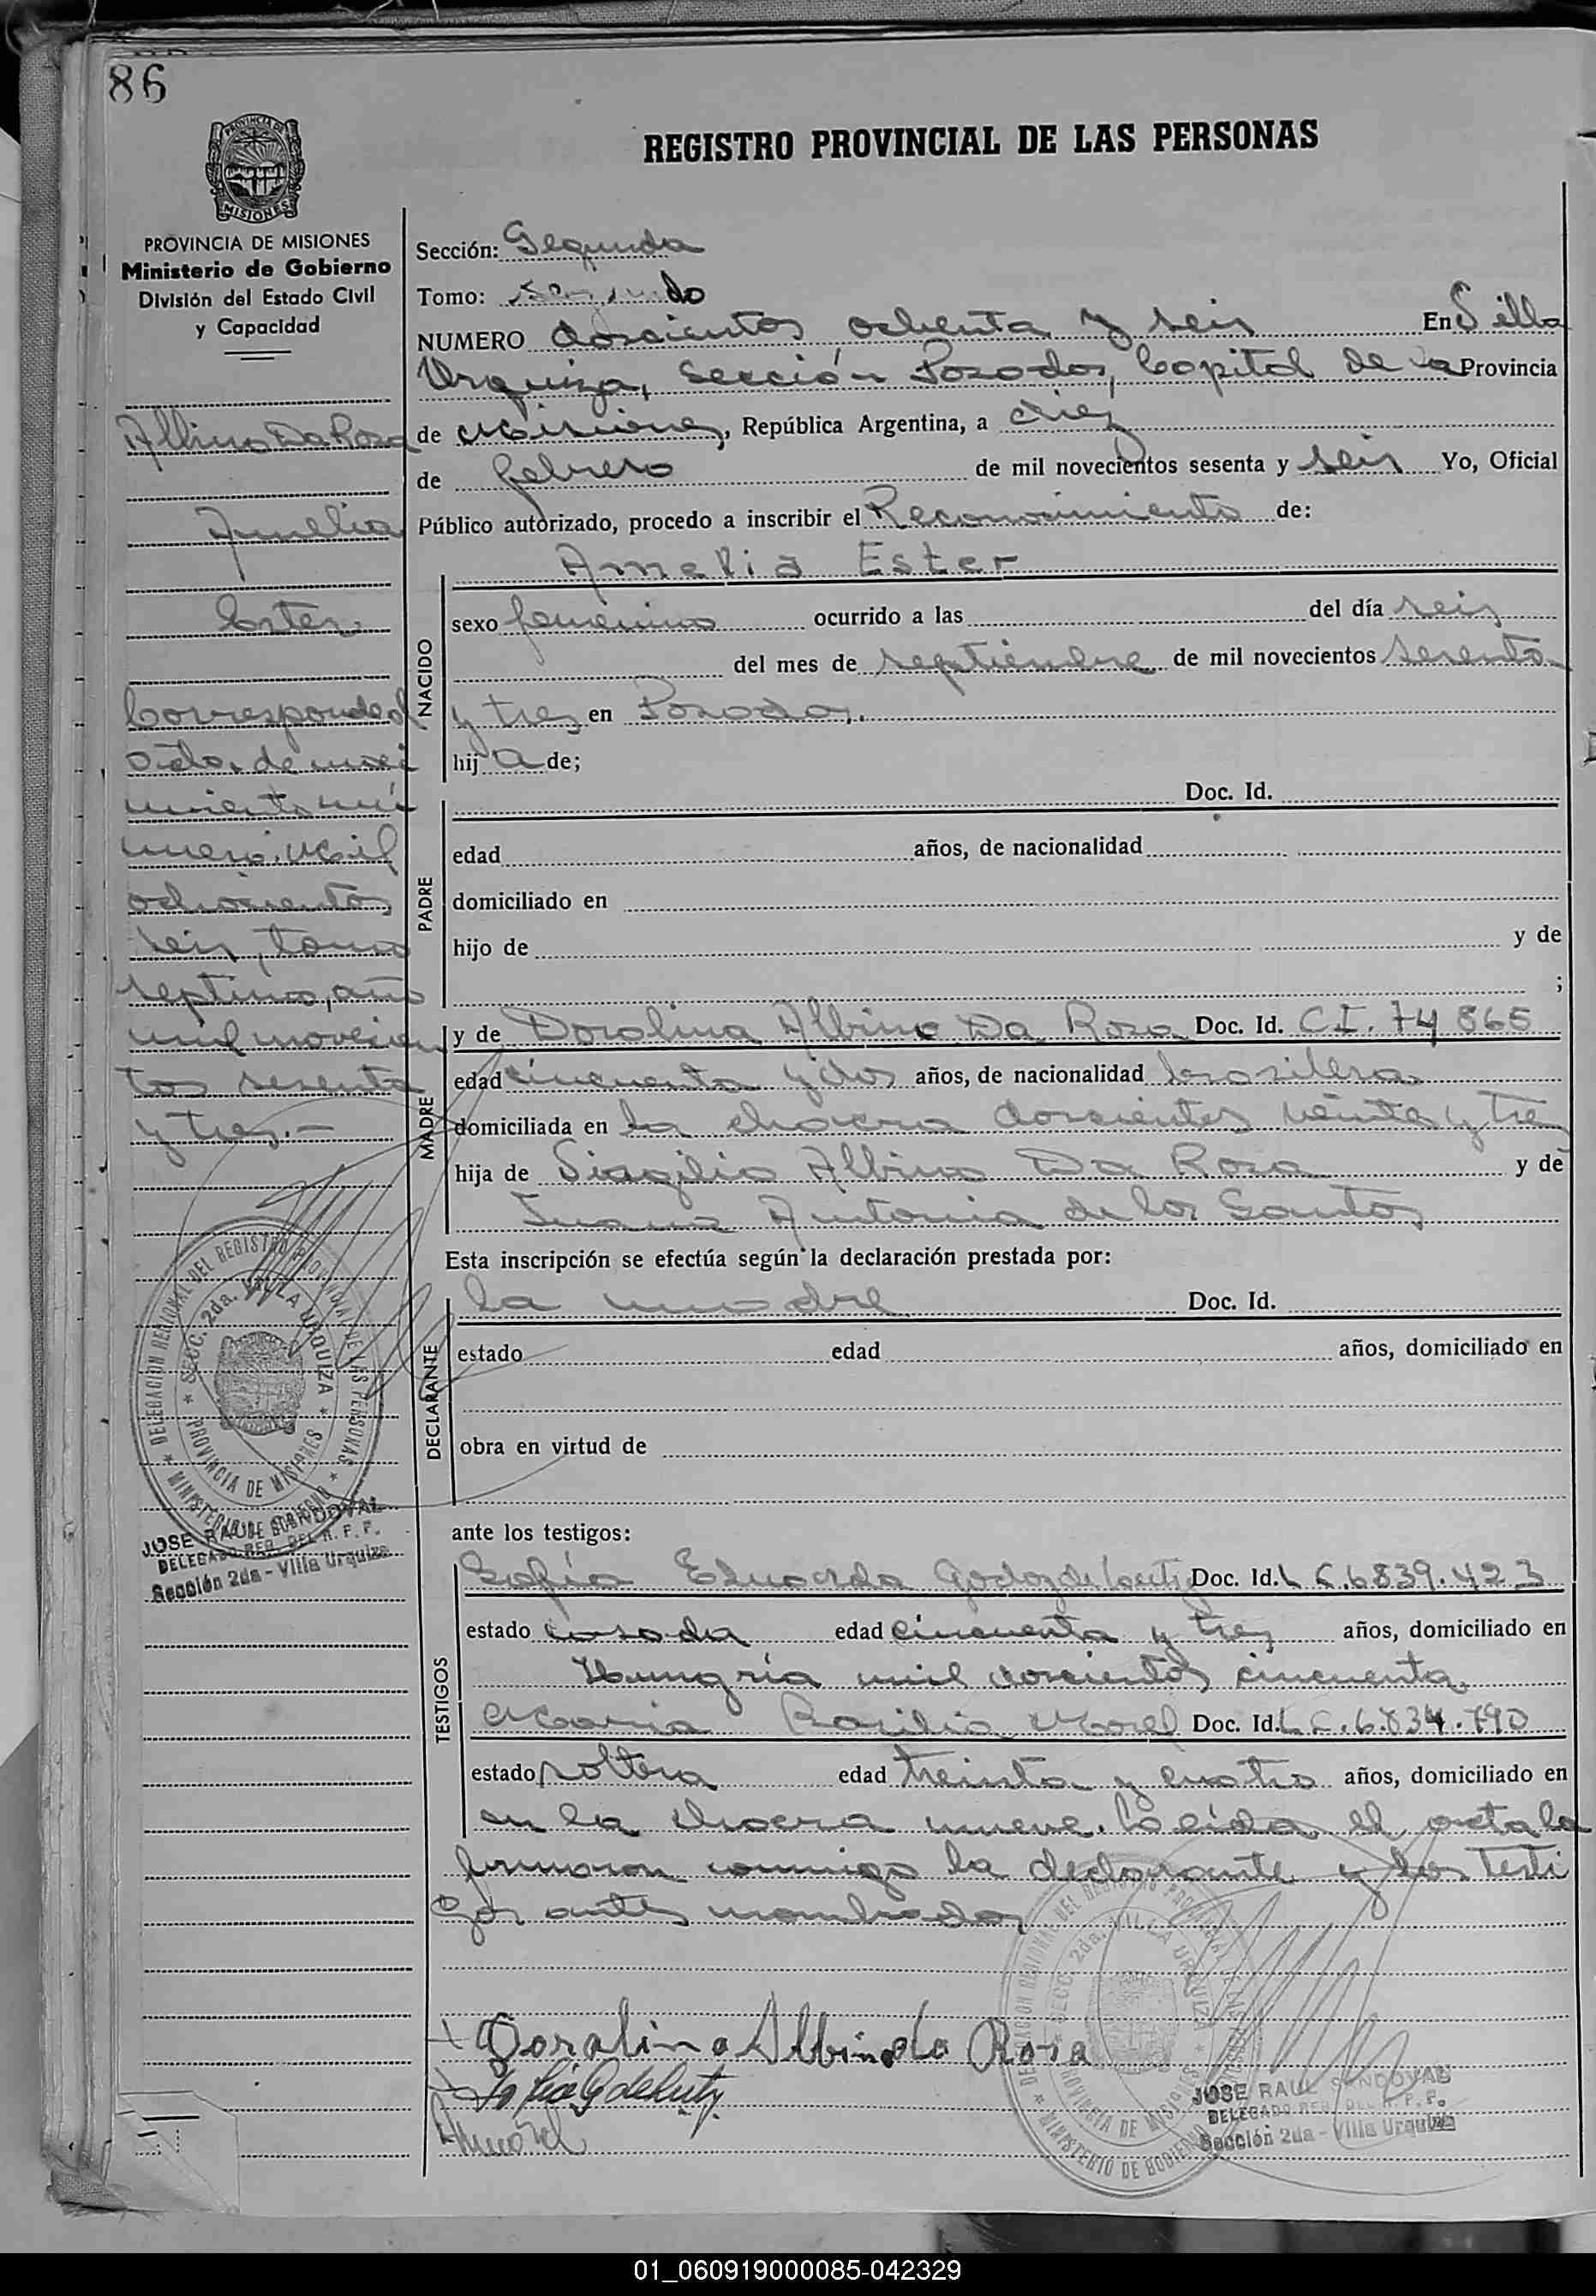 86
REGISTRO PROVINCIAL DE LAS PERSONAS
PROVINCIA DE MISIONES
MISIONES
PROVINCIA DE MISIONES
Ministerio de Gobierno
División del Estado Civil
y Capacidad
Albino Da Rosa
Amelia
Ester
Corresponde al
acta de naci
miento nú
mero. Mil
ochocientos
seis, tomo
septimo, año
mil novecien
tos sesenta
y tres.-
DELEGACION REGIONAL DEL REGISTRO PROVINCIAL DE LAS PERSONAS
SECC. 2da. VILLA URQUIZA
PROVINCIA DE MISIONES
MINISTERIO DE GOBIERNO
JOSE RAUL SANDOVAL
DELEGADO REG. DEL R. P. P.
Sección 2da - Villa Urquiza
Sección: Segunda
Tomo: segundo
NUMERO doscientos ochenta y seis En Villa
Urquiza, Sección Posadas, Capital de la Provincia
de Misiones, República Argentina, a diez
de febrero de mil novecientos sesenta y seis Yo, Oficial
Público autorizado, procedo a inscribir el Reconocimiento de:
NACIDO
Amelia Ester
sexo femenino ocurrido a las del día seis
del mes de septiembre de mil novecientos sesenta
y tres en Posadas.
hij a de;
PADRE
Doc. Id.
edad años, de nacionalidad
domiciliado en
hijo de y de
;
MADRE
y de Doralina Albino Da Rosa Doc. Id. C.I. 74865
edad cincuenta y dos años, de nacionalidad brasilera
domiciliada en la chacra doscientos veinte y tres
hija de Albino Da Rosa y de
Juana Antonia de los Santos
Esta inscripción se efectúa según la declaración prestada por:
DECLARANTE
la madre Doc. Id.
estado edad años, domiciliado en
obra en virtud de
ante los testigos:
TESTIGOS
Sofía Eduarda Godoy de Doc. Id. L C. 6839.423
estado casada edad cincuenta y tres años, domiciliado en
Hungría mil doscientos cincuenta
Maria Morel Doc. Id. L C. 6.834.790
estado soltera edad treinta y cuatro años, domiciliado en
en la chacra nueve. Leída el acta la
firmaron conmigo la declarante y los testi
gos antes nombrados
Doralina Albino da Rosa
JOSE RAUL SANDOVAL
DELEGADO REG. DEL R. P. P.
Sección 2da - Villa Urquiza
DELEGACION REGIONAL DEL REGISTRO PROVINCIAL DE LAS PERSONAS
SECC. 2da. VILLA URQUIZA
PROVINCIA DE MISIONES
MINISTERIO DE GOBIERNO
01_060919000085-042329